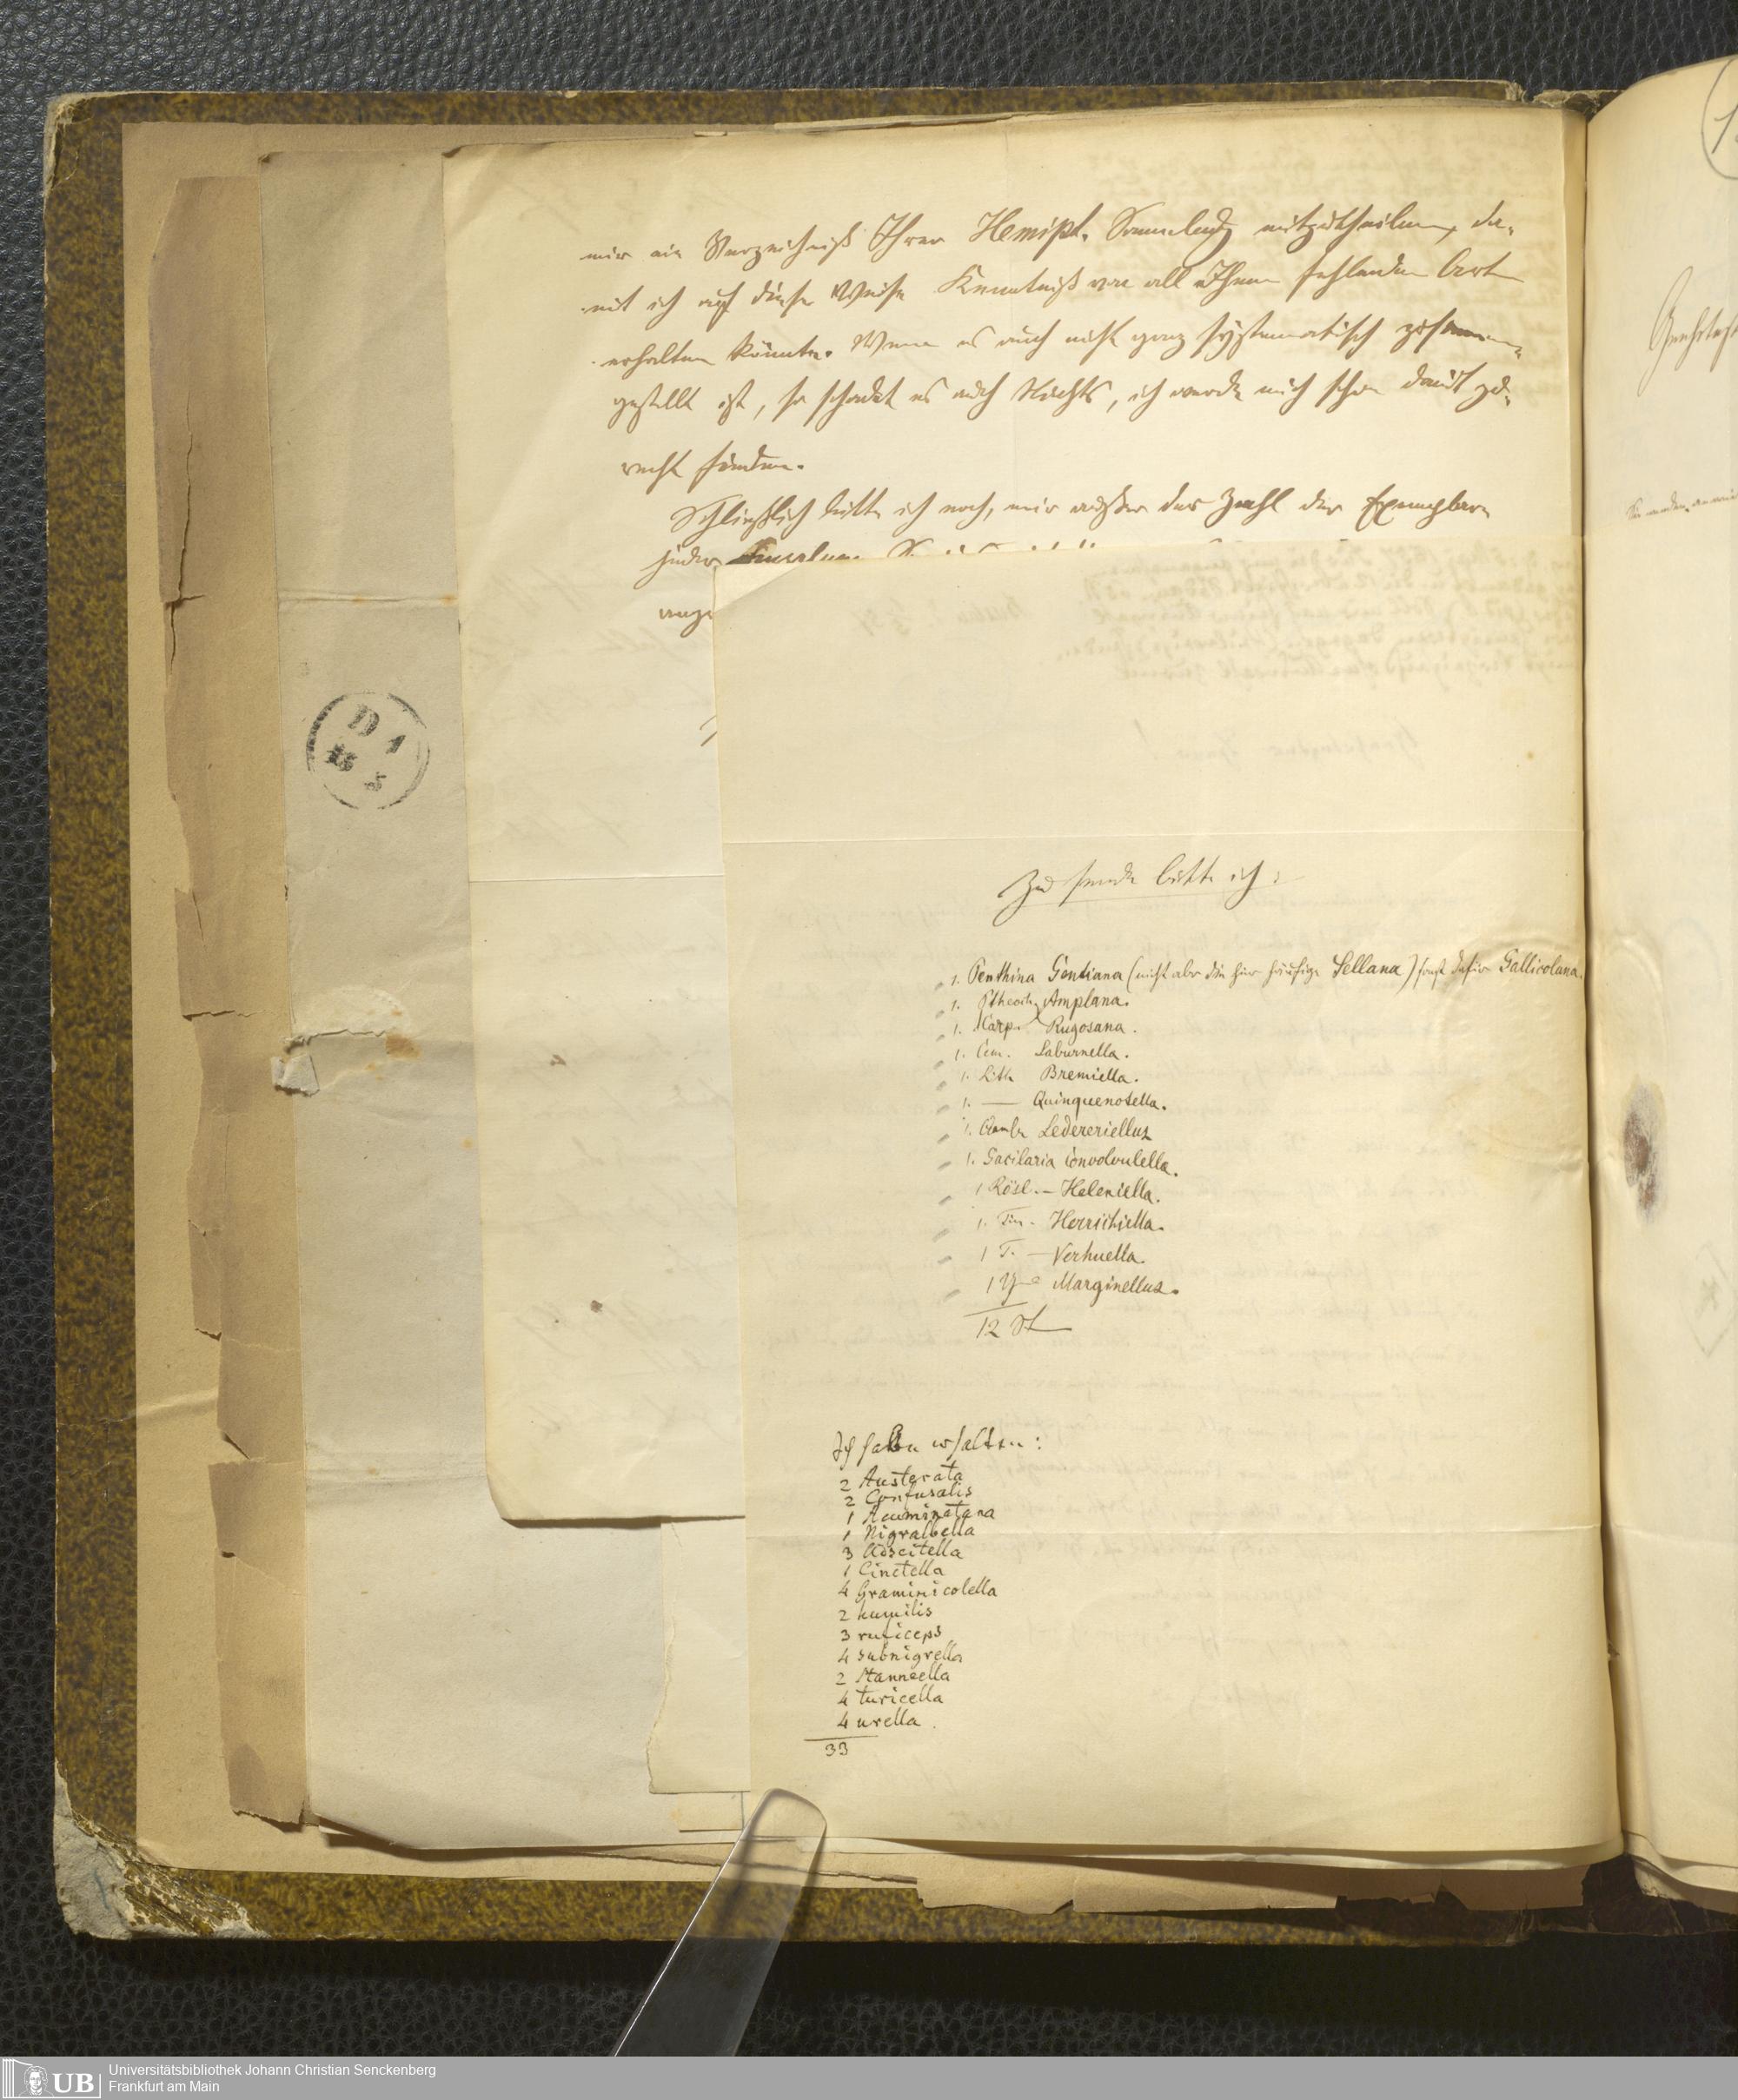 mir ein Verzeichniß Ihrer Hemipt. Sammlung mitzutheilen, da-
mit ich auf diese Weise Kenntniß von all Ihnen fehlenden Art
erhalten könnte. Wenn es auch nicht ganz systematisch zusammen-
gestellt ist, so schadet es auch Nichts, ich werde mich schon damit zu-
recht finden.
Schließlich bitte ich noch, mir außer der Zahl der Exemplare
jeder
D 1
Zu senden bitte ich:
1. Penthina Gentiana (nicht aber die hier häufige Sellana) sonst dafür Gallicolana.
1. Amplana.
1. Carp. Rugosana.
1. Cem. Laburnella.
1. Lith. Bremiella.
1. — Quinquenotella.
1. Cramb. Ledereriellus
1. Gracilaria Convolvulella.
1 Rösl. — Heleniella.
1. Tin. Herrichiella.
1 T. — Verhuella.
1 Marginellus.
12 St
Ich habe erhalten:
2 Austerata
2 Confusalis
1 Acuminatana
1 Nigralbella
3 Adscitella
1 Cinctella
4 Graminicolella
2 humilis
3 ruficeps
4 subnigrella
2 Stanneella
4 turicella
4 urella.
33
Universitätsbibliothek Johann Christian Senckenberg
Frankfurt am Main
UB